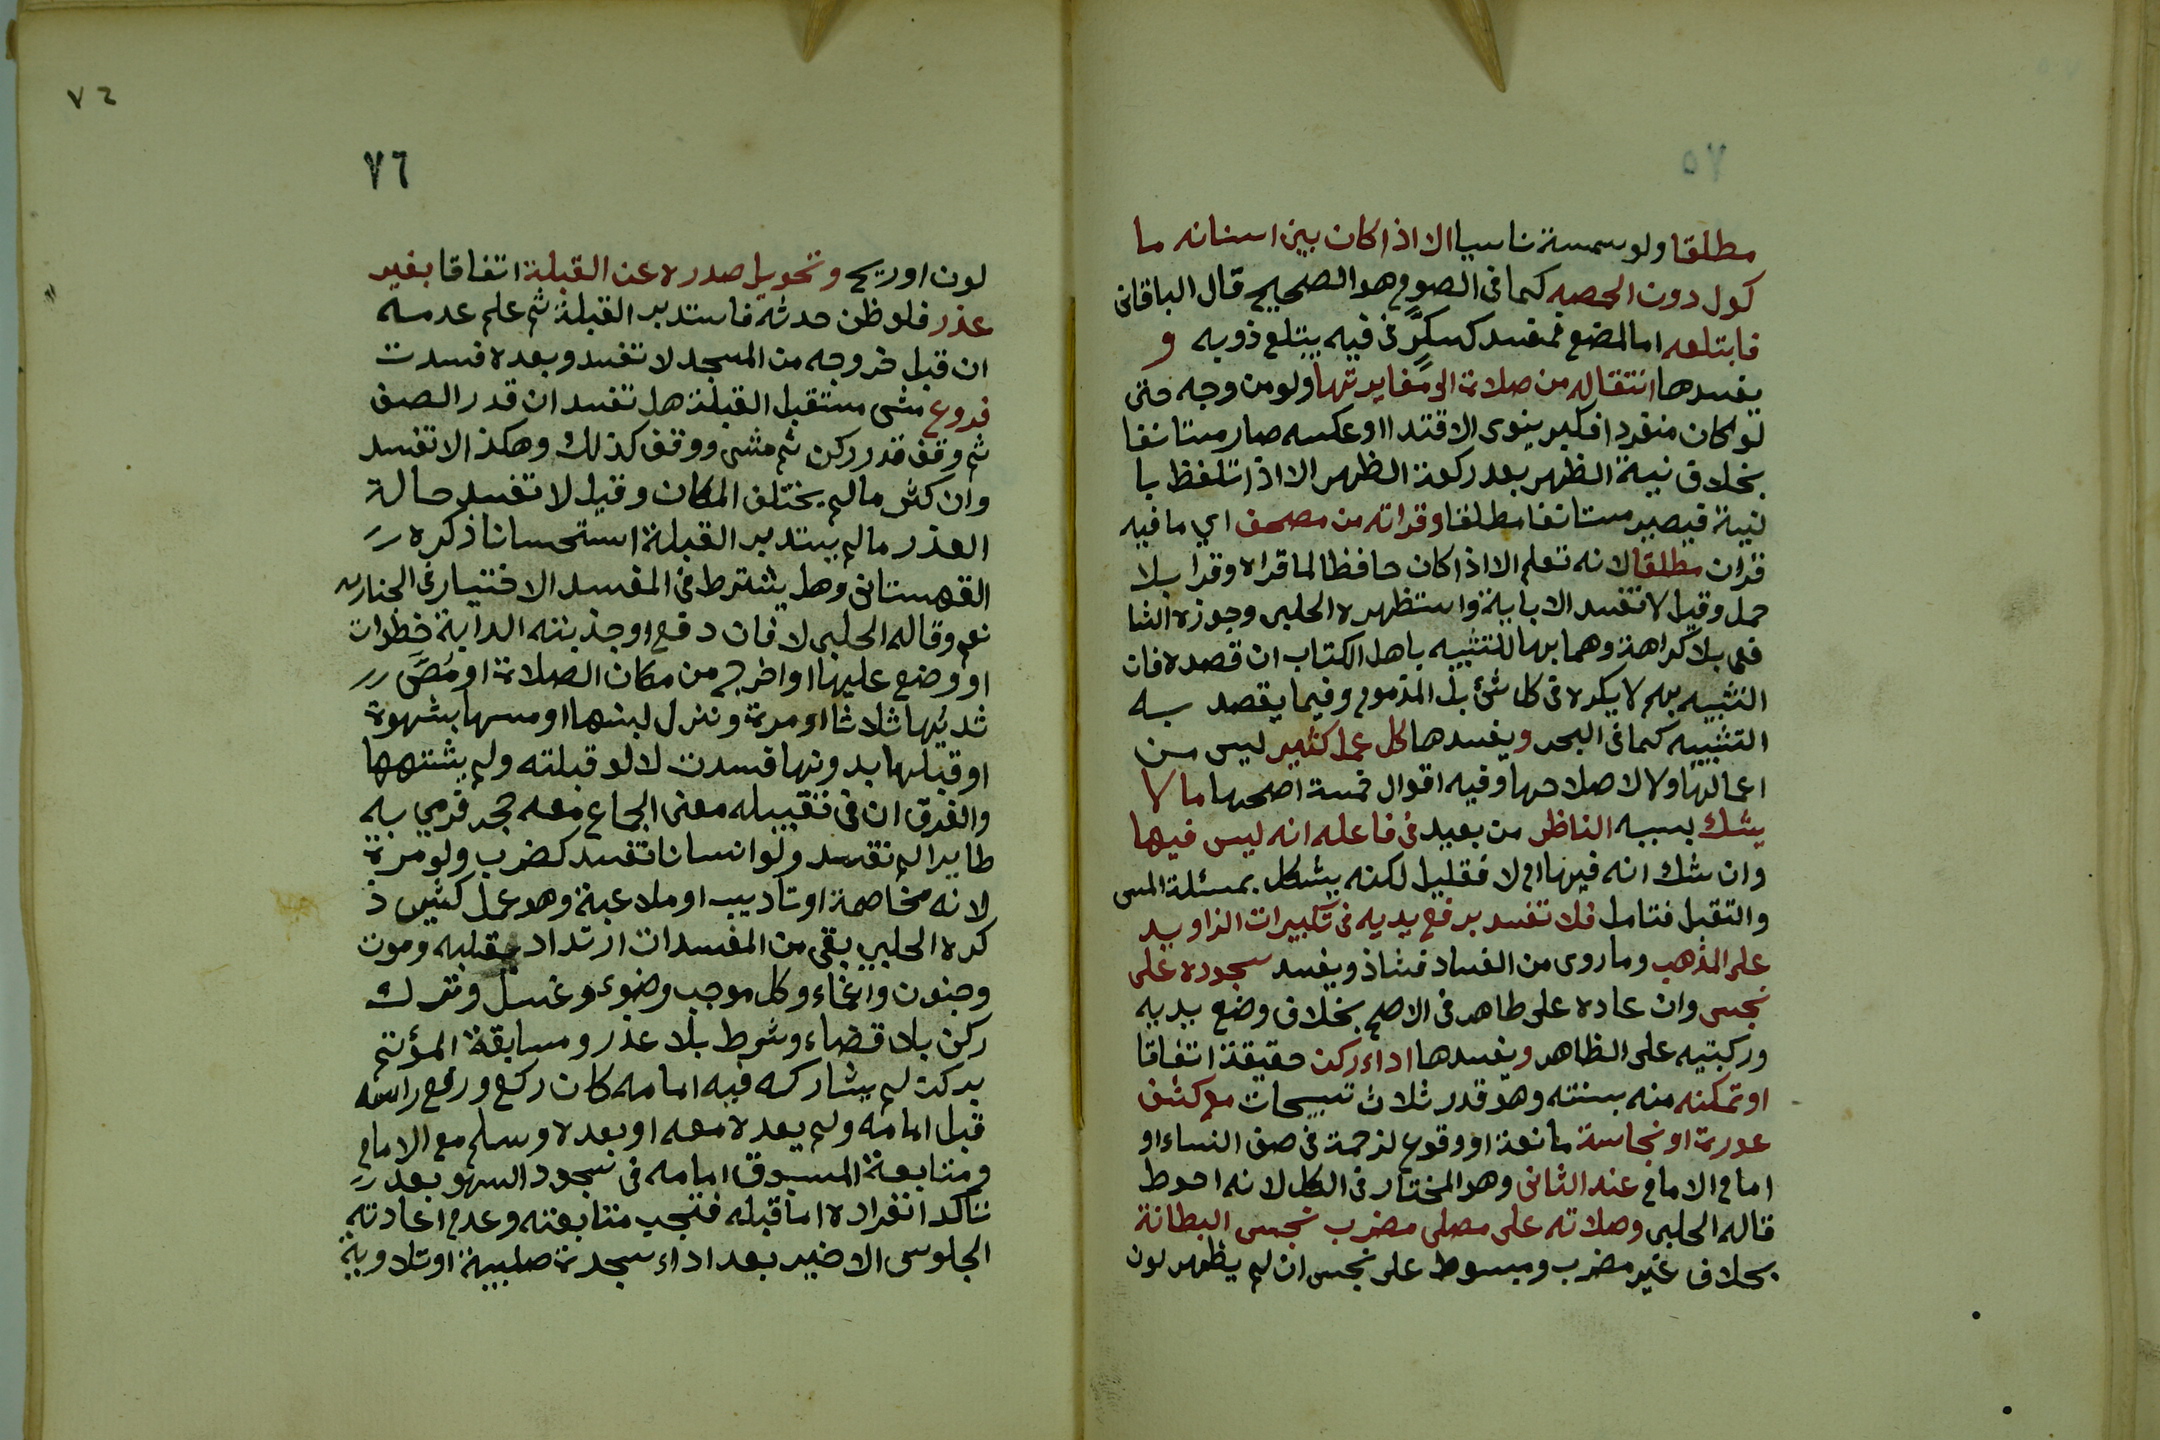 مطلقا ولو سمسة ناسيا الا اذا كان بين اسنانه ما
كول دون الحصه كما فى الصوم هو الصحيح قال الباقانى
فابتلعه اما المضع فمفسد كسكرٍ فى فيه يبتلع ذوبه و
يفسدها انتقاله من صلاة الى مغايرتها ولو من وجه حتى
لو كان منفردا فكبر ينوى الاقتدا او عكسه صار مستانفا
بخلاف نية الظهر بعد ركعة الظهر الا اذا تلفظ با
لنية فيصير مستانفا مطلقا وقراته من مصحف اي ما فيه
قران مطلقا لانه تعلم الا اذا كان حافظا لما قراه وقرا بلا
حمل وقيل لا تفسد الا باية واستظهره الحلبى وجوزه الشا
فعى بلا كراهة وهما بها للتشبيه باهل الكتاب ان قصده فان
التشبيه بهم لا يكره فى كل شئ بل المذموم وفيما يقصد به
التشبيه كما فى البحر ويفسدها كل عمل كثير ليس من
اعمالها ولا لاصلاحها وفيه اقوال خمسة اصحها ما لا
يشك بسببه الناظر من بعيد فى فاعله انه ليس فيها
وان شك انه فيها ام لا فقليل لكنه يشكل بمسئلة المس
والتقبل فتامل فلا تفسد برفع يديه فى تكبيرات الزاويد
على المذهب وما روى من الفساد فشاذ ويفسد سجوده على
نجس وان عاده على طاهر فى الاصح بخلاف وضع يديه
وركبتيه على الظاهر ويفسدها اداء ركن حقيقة اتفاقا
او تمكنه منه بسنته وهو قدر ثلاث تسبيحات مع كشف
عورة او نجاسة مانعة او وقوع لزحمة فى صف النساء او
امام الامام عند الثانى وهو المختار فى الكل لانه احوط
قاله الحلبى وصلاته على مصلى مضرب نجس البطانة
بخلاف غير مضرب ومبسوط على نجس ان لم يظهر لون
٧٦
٧٦
لون او ريح وتحويل صدره عن القبلة اتفاقا بغير
عذر فلو ظن حدثه فاستدبر القبلة ثم علم عدمه
ان قبل خروجه من المسجد لا تفسد وبعده فسدت
فروع مشى مستقبل القبلة هل تفسد ان قدر الصف
ثم وقف قدر ركن ثم مشى ووقف كذلك وهكذا لا تفسد
وان كثر مالم يختلف المكان وقيل لا تفسد حالة
العذر مالم يستدبر القبلة استحسانا ذكره رر
القهستانى وهل يشترط فى المفسد الاختيار فى الخنازيه
نعم وقاله الحلبى لا فان دفع او جذبته الدابة خطوات
او وضع عليها او اخرج من مكان الصلاة او مَصَّ رر
ثديها ثلاثا او مرة ونزل لبنها او مسها بشهوة
او قبلها بدونها فسدت لا لو قبلته ولم يشتهها
والفرق ان فى تقبيله معنى الجماع معه حجر فرمي به
طايرا لم تفسد ولو انسانا تفسد كضرب ولو مرة
لانه مخاصمة او تاديب او ملاعبة وهو عمل كثير ذ
كره الحلبي بقى من المفسدات ارتداد بقلبه وموت
وجنون واغماء وكل موجب وضوء وغسل وترك
ركن بلا قضاء وشرط بلا عذر ومسابقة المؤتم
بركن لم يشاركه فيه امامه كان ركع ورفع راسه
قبل امامه ولم يعده معه او بعده وسلم مع الامام
ومتابعة المسبوق امامه فى سجود السهو بعد رر
تاكد انفراده اما قبله فتجب متابعته وعدم اعادته
الجلوس الاخير بعد اداء سجدة صلبية او تلاوية